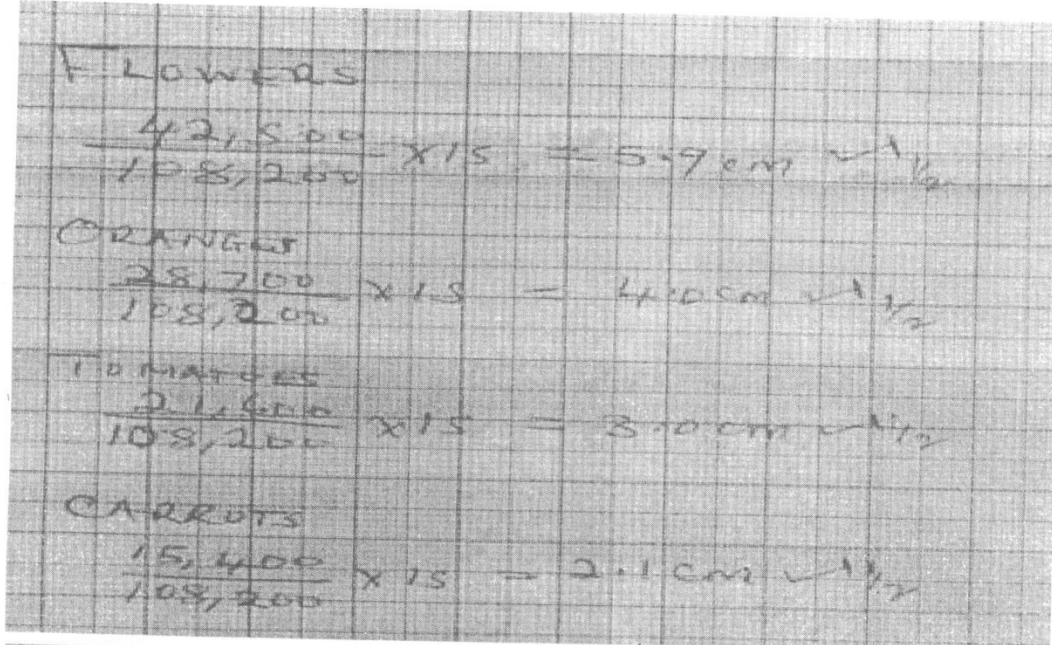 FLOWERS
42,500
108,200 x 15 = 5.9cm ✓ ½
ORANGES
28,700
108,200 x 15 = 4.0cm ✓ ½
TOMATOES
21,600
108,200 x 15 = 3.0cm ✓ ½
CARROTS
15,400
108,200 x 15 = 2.1cm ✓ ½